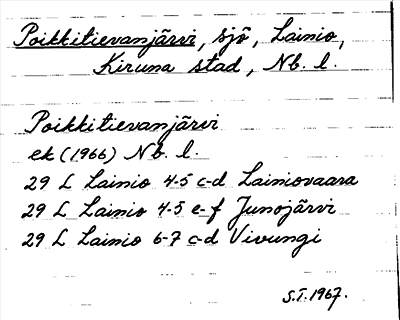 Poikkitievanjärvi, sjö, Lainio,
Kiruna stad, Nb. l.
Poikkitievanjärvi
ek (1966) Nb. l.
29 L Lainio 4-5 c-d Lainiovaara
29 L Lainio 4-5 e-f Junojärvi
29 L Lainio 6-7 c-d Vivungi
S.T. 1967.